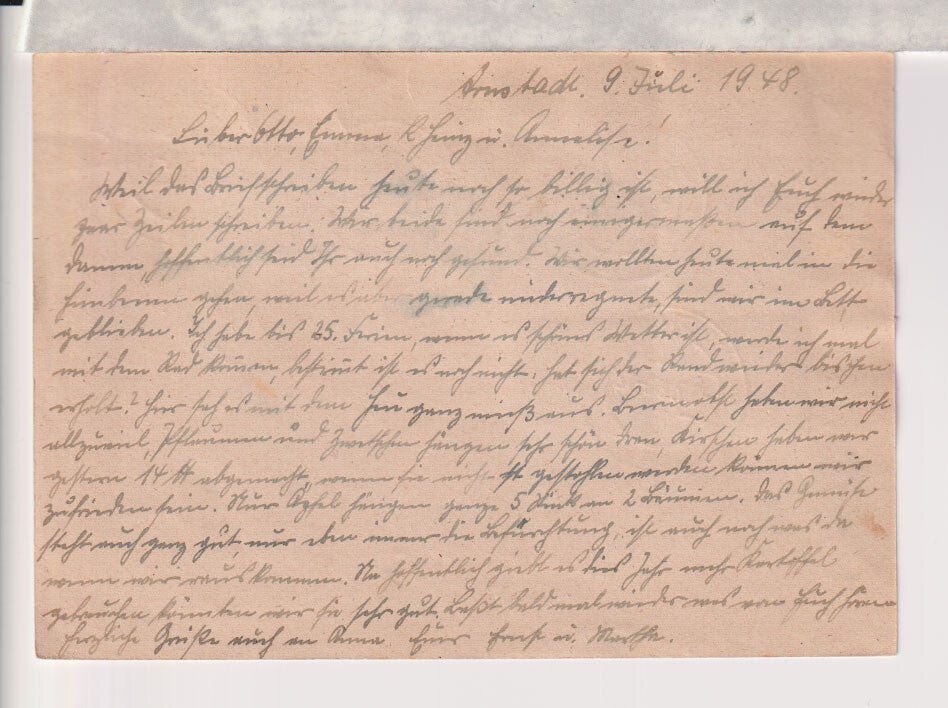 Arnstadt. 9. Juli 1948.
Lieber Otto, Emma, K Heinz u. Anneliese!
Weil das Briefschreiben heute noch so billig ist, will ich Euch wieder
paar Zeilen schreiben. Wir beide sind noch einigermaßen auf dem
Damm, hoffentlich seid Ihr auch noch gesund. Wir wollten heute mal in die
Himbeeren gehen, weil es aber gerade regnete, sind wir im Bett
geblieben. Ich habe bis 25. Ferien, wenn es schönes Wetter ist, werde ich mal
mit dem Rad kommen, bestimmt ist es noch nicht. hat sich der wieder bischen
erholt? Hier sah es mit dem Heu ganz mieß aus. Beerenobst haben wir nicht
allzuviel, Pflaumen und Zwetschen hängen sehr schön dran, Kirschen haben wir
gestern 14 ℔ abgemacht, wenn sie nicht gestohlen werden können wir
zufrieden sein. Nur Äpfel hängen ganze 5 Stück an 2 Bäumen. Das Gemüse
steht auch ganz gut, nur eben immer die Befürchtung, ist auch noch was da
wenn wir raus kommen. Na hoffentlich giebt es dies Jahr mehr Kartoffel
gebrauchen könnten wir sie sehr gut. Laßt bald mal wieder was von Euch hören
Herzliche Grüße auch an Anna Eure Ernst u. Martha.